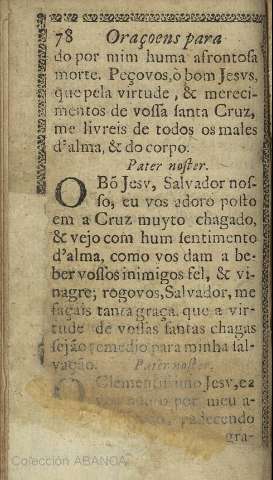 78 Oraçoens para
do por mim huma afrontosa
morte. Peçovos, ò bom Jesvs,
que pela virtude, & mereci-
mentos de vossa santa Cruz,
me livreis de todos os males
d'alma, & do corpo.
Pater noster.
O Bõ Jesv, Salvador nos-
so, eu vos adoro posto
em a Cruz muyto chagado,
& vejo com hum sentimento
d'alma, como vos dam a be-
ber vossos inimigos fel, & vi-
nagre; rogovos, Salvador, me
façais tanta graça, que a vir-
tude de vossas santas chagas
sejão remedio para minha sal-
vação. Pater noster.
O Clementissimo Jesv, eu
vos adoro por meu a-
padecendo
gra-
Colección ABANCA